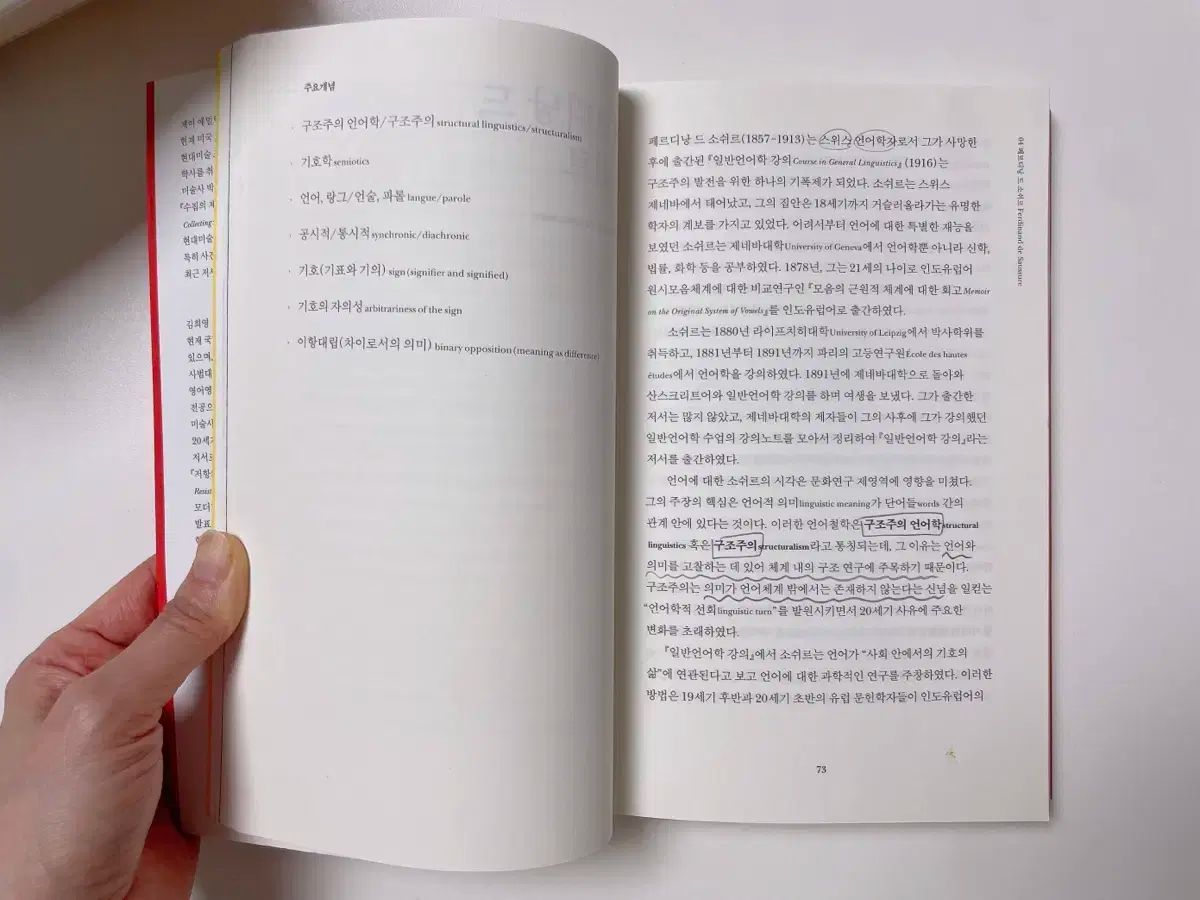 주요개념
· 구조주의 언어학/구조주의 structural linguistics/structuralism
· 기호학 semiotics
· 언어, 랑그/언술, 파롤 langue/parole
· 공시적/통시적 synchronic/diachronic
· 기호(기표와 기의) sign (signifier and signified)
· 기호의 자의성 arbitrariness of the sign
· 이항대립(차이로서의 의미) binary opposition (meaning as difference)
현재 미국
현대미술
학사를 취
미술사 박
『수집의
Collecting
현대미술
특히 사진
최근 저서
김희영
현재 국
있으며,
사범대
영어영
전공으
미술사
20세기
저서로
『저항의
Resist
모더
발표
페르디낭 드 소쉬르(1857-1913)는 스위스 언어학자로서 그가 사망한
후에 출간된 『일반언어학 강의Course in General Linguistics』 (1916)는
구조주의 발전을 위한 하나의 기폭제가 되었다. 소쉬르는 스위스
제네바에서 태어났고, 그의 집안은 18세기까지 거슬러올라가는 유명한
학자의 계보를 가지고 있었다. 어려서부터 언어에 대한 특별한 재능을
보였던 소쉬르는 제네바대학University of Geneva에서 언어학뿐 아니라 신학,
법률, 화학 등을 공부하였다. 1878년, 그는 21세의 나이로 인도유럽어
원시모음체계에 대한 비교연구인 『모음의 근원적 체계에 대한 회고Memoir
on the Original System of Vowels』를 인도유럽어로 출간하였다.
소쉬르는 1880년 라이프치히대학University of Leipzig에서 박사학위를
취득하고, 1881년부터 1891년까지 파리의 고등연구원École des hautes
études에서 언어학을 강의하였다. 1891년에 제네바대학으로 돌아와
산스크리트어와 일반언어학 강의를 하며 여생을 보냈다. 그가 출간한
저서는 많지 않았고, 제네바대학의 제자들이 그의 사후에 그가 강의했던
일반언어학 수업의 강의노트를 모아서 정리하여 『일반언어학 강의』라는
저서를 출간하였다.
언어에 대한 소쉬르의 시각은 문화연구 제영역에 영향을 미쳤다.
그의 주장의 핵심은 언어적 의미linguistic meaning가 단어들words 간의
관계 안에 있다는 것이다. 이러한 언어철학은 구조주의 언어학structural
linguistics 혹은 구조주의structuralism라고 통칭되는데, 그 이유는 언어와
의미를 고찰하는 데 있어 체계 내의 구조 연구에 주목하기 때문이다.
구조주의는 의미가 언어체계 밖에서는 존재하지 않는다는 신념을 일컫는
"언어학적 선회linguistic turn"를 발원시키면서 20세기 사유에 주요한
변화를 초래하였다.
『일반언어학 강의』에서 소쉬르는 언어가 "사회 안에서의 기호의
삶"에 연관된다고 보고 언어에 대한 과학적인 연구를 주장하였다. 이러한
방법은 19세기 후반과 20세기 초반의 유럽 문헌학자들이 인도유럽어의
73
04 페르디낭 드 소쉬르 Ferdinand de Saussure